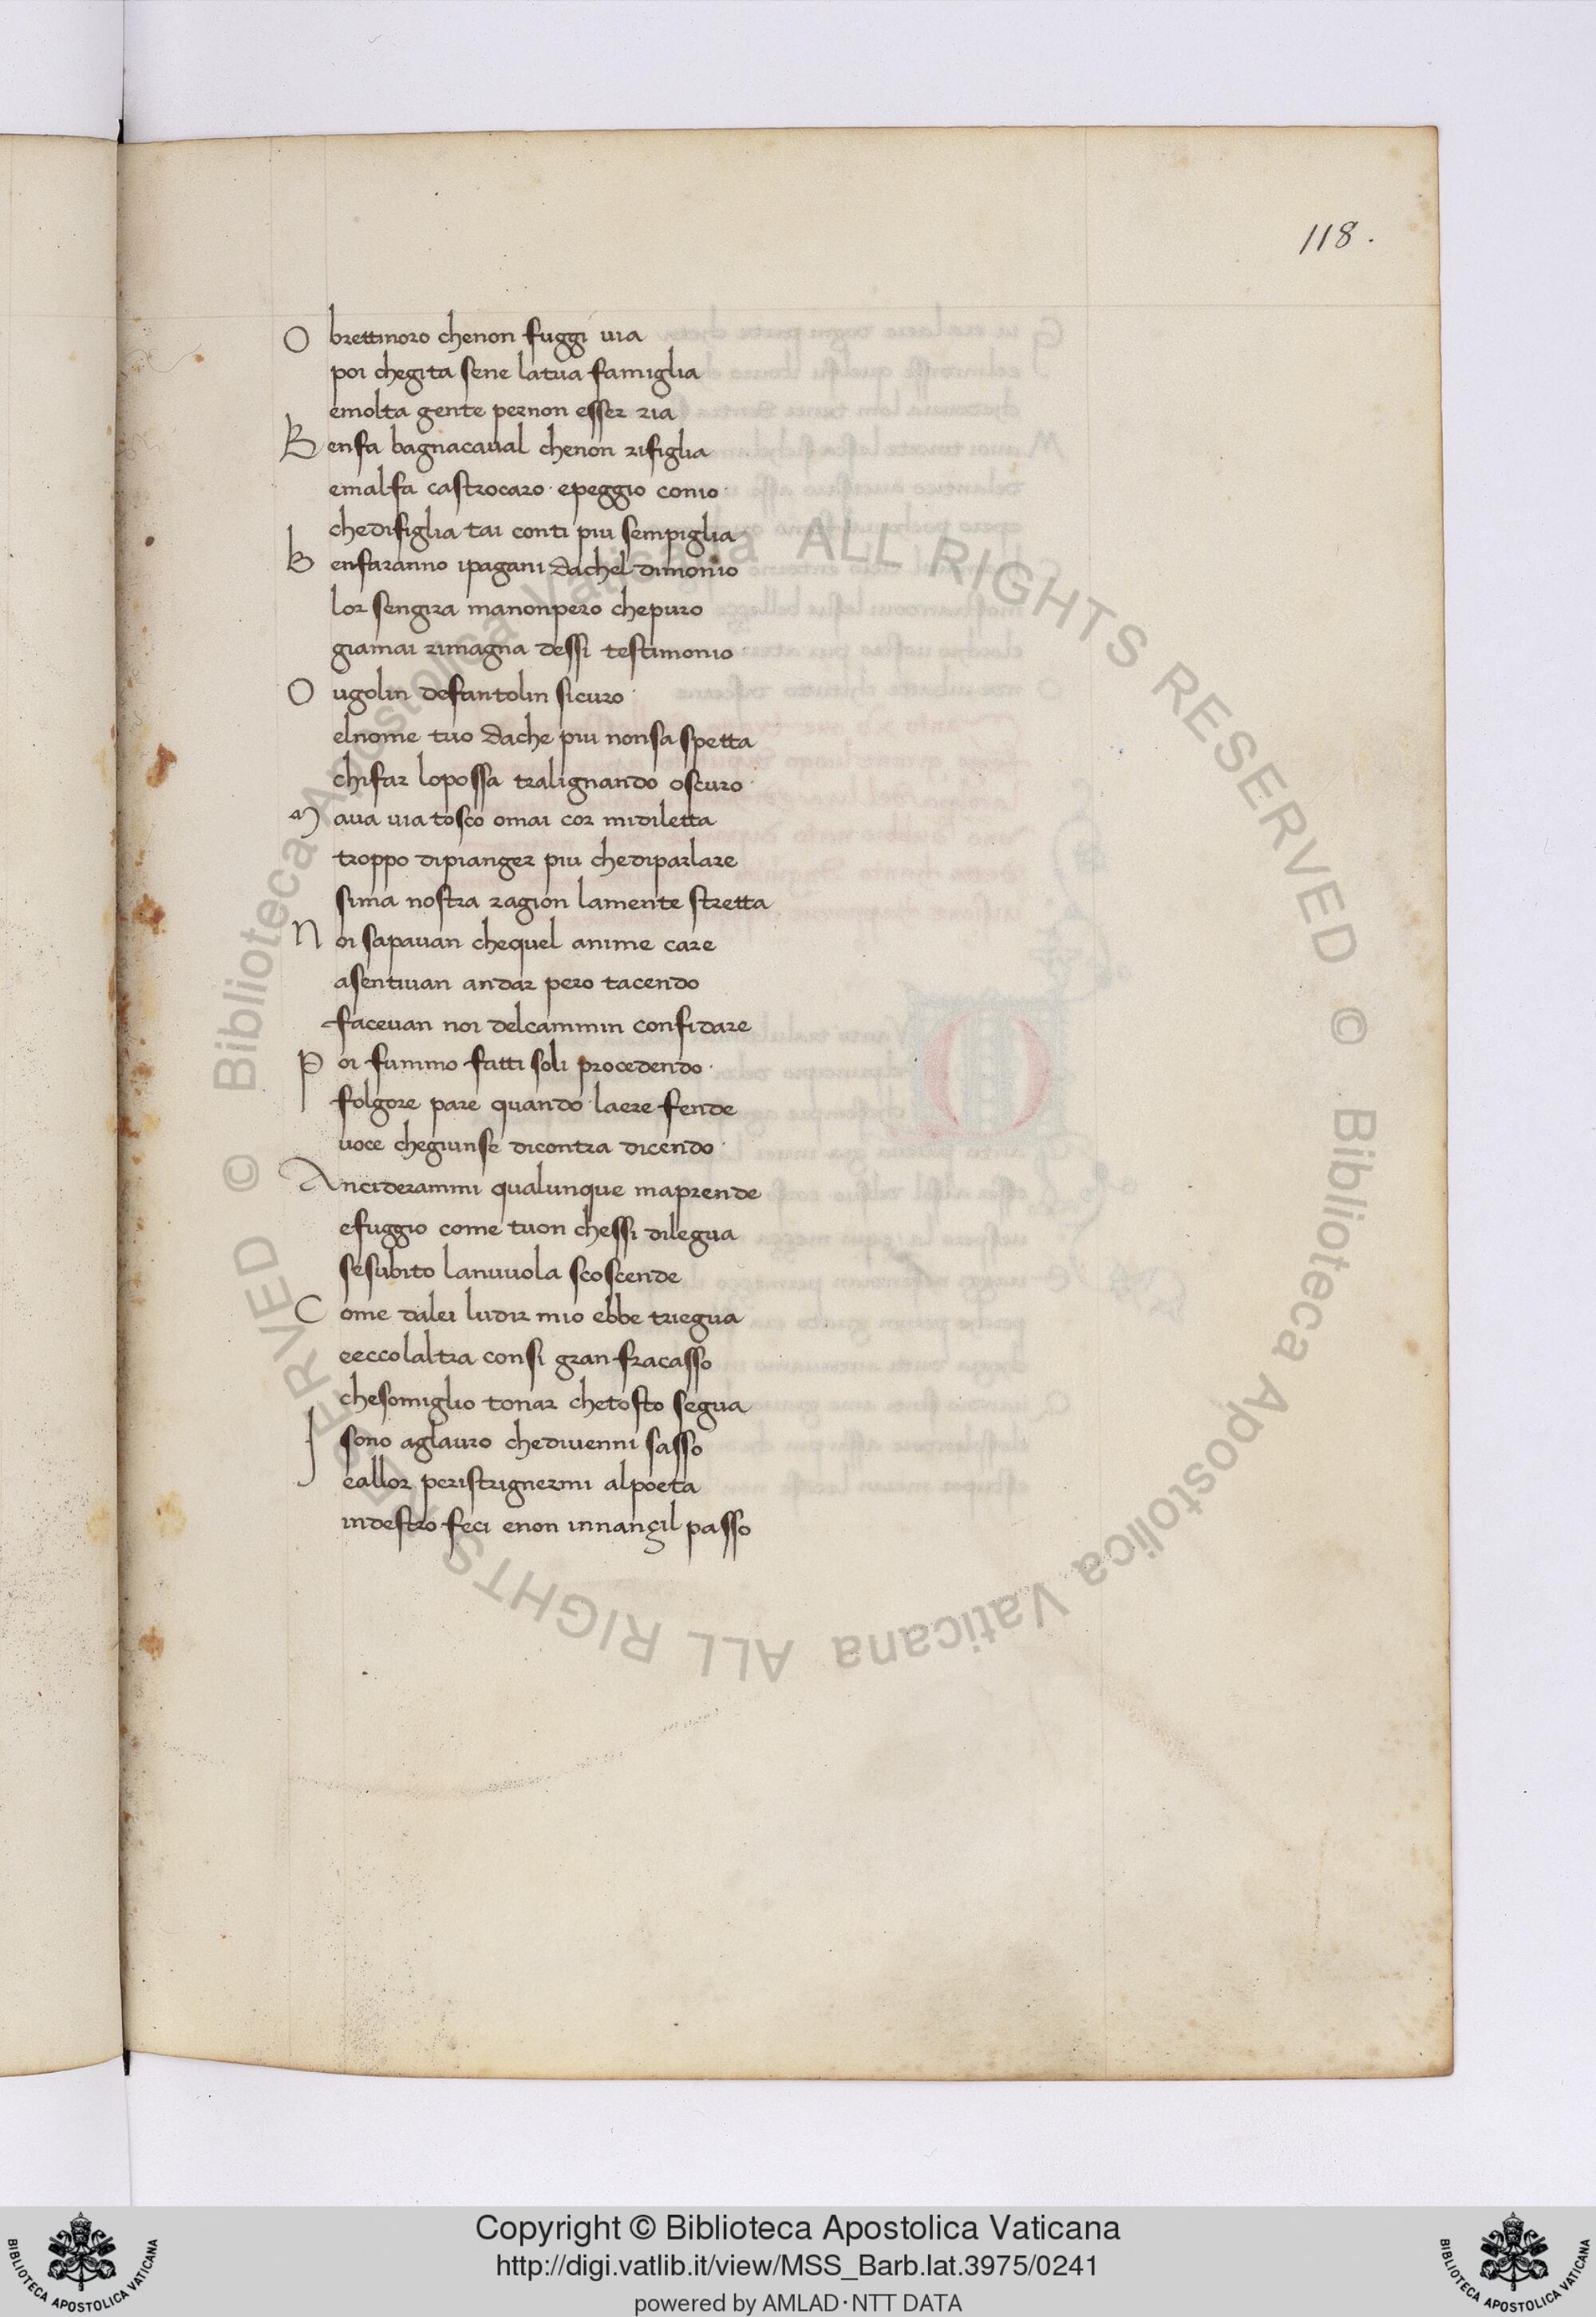 118.
O brettinoro chenon fuggi uia
poi chegita sene latua famiglia
emolta gente pernon esser ria
B enfa bagnacaual chenon rifiglia
emalfa castrocaro · epeggio conio ·
chedifiglia tai conti piu sempiglia ·
B enfaranno ipagani dachel dimonio
lor sengira manonpero chepuro
giamai rimagna dessi testimonio ·
O ugolin defantolin sicuro ·
elnome tuo dache piu nonsa spetta
chifar lopossa tralignando oscuro ·
M aua uia tosco omai cor midiletta
troppo dipianger piu chediparlare
sima nostra ragion lamente stretta
N oi sapauan chequel anime care
asentiuan andar pero tacendo
faceuan noi delcammin confidare
P oi fummo fatti soli procedendo ·
folgore pare quando laere fende
uoce chegiunse dicontra dicendo ·
Anciderammi qualunque maprende
efuggio come tuon chessi dilegua
sesubito lanuuola scoscende
C ome dalei ludir mio ebbe triegua
eeccolaltra consi gran fracasso
chesomiglio tonar chetosto segua
I sono aglauro chediuenni sasso
eallor peristrignermi alpoeta
indestro feci enon innançil passo
© Biblioteca Apostolica Vaticana ALL RIGHTS RESERVED © Biblioteca Apostolica Vaticana ALL RIGHTS RESERVED
Copyright © Biblioteca Apostolica Vaticana
http://digi.vatlib.it/view/MSS_Barb.lat.3975/0241
powered by AMLAD·NTT DATA
BIBLIOTECA APOSTOLICA VATICANA
BIBLIOTECA APOSTOLICA VATICANA